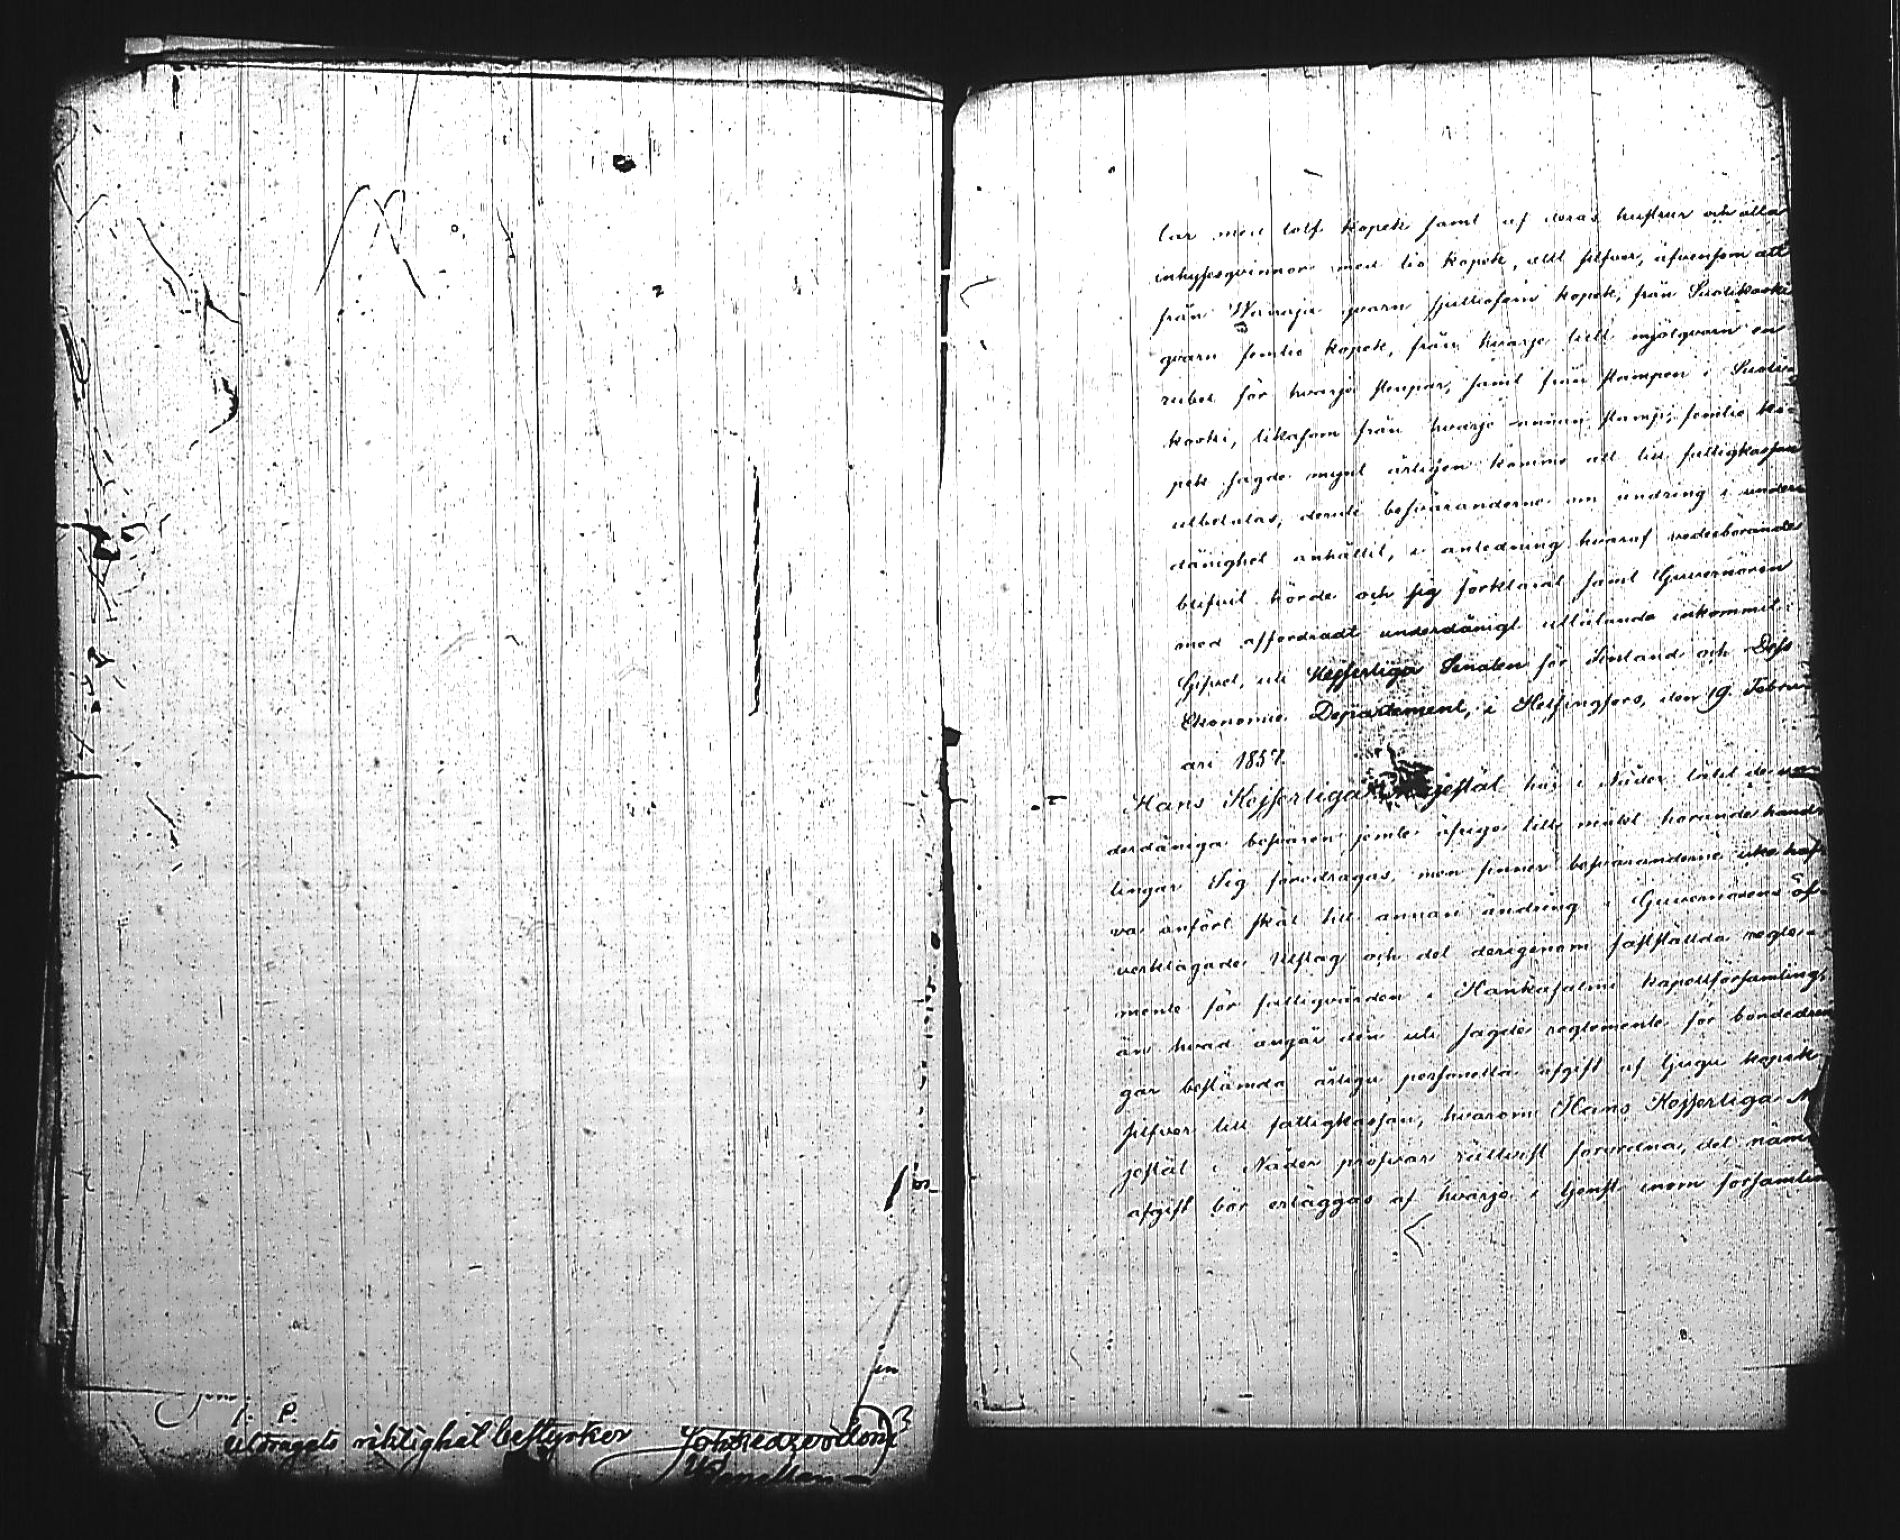 utdragets riktighet bestyrker
lar med tolf kopek samt af deras hustrur och alla
inhysesqvinnor med tio kopek, allt silfver, äfvensom att
från qvarn sjuttiofem kopek, från Suolikoski
qvarn femtio kopek, från hvarje liten mjölqvarn en
rubel för hvarje stenpar, samt från stampen i Suoli-
koski, likasom från hvarje annan stamp, femtio ko-
pek sagde mynt årligen komme att till fattigkassan
utbetalas, deruti besväranderne om ändring i under-
dånighet anhållit, i anledning hvaraf vederbörande
blifvit hörde och sig förklarat samt Guvernören
med affordradt underdånigt utlåtande inkommit:
Gifvet, uti Kejserliga Senaten för Finland och Dess
Ekonomie Departement, i Helsingfors, den 19 Febru-
ari 1857.
Hans Kejserliga Majestät har i Nåder låtit de un-
derdåniga besvären jemte öfrige till målet hörande hand-
lingar Sig föredragas, men finner besväranderne icke haf-
va anfört skäl till annan ändring i Guvernörens öf-
verklagade Utslag och det derigenom fastställda regle-
mente för fattigvården i Hankasalmi kapellförsamling,
än hvad angår den uti sagde reglemente för bondedren-
gar bestämda årliga personella afgift af tjugu kopek
silfver till fattigkassan, hvarom Hans Kejserliga M
jestät i Nåder pröfvar rättvist förordna, det näm
afgift bör erläggas af hvarje i tjenst inom församlin